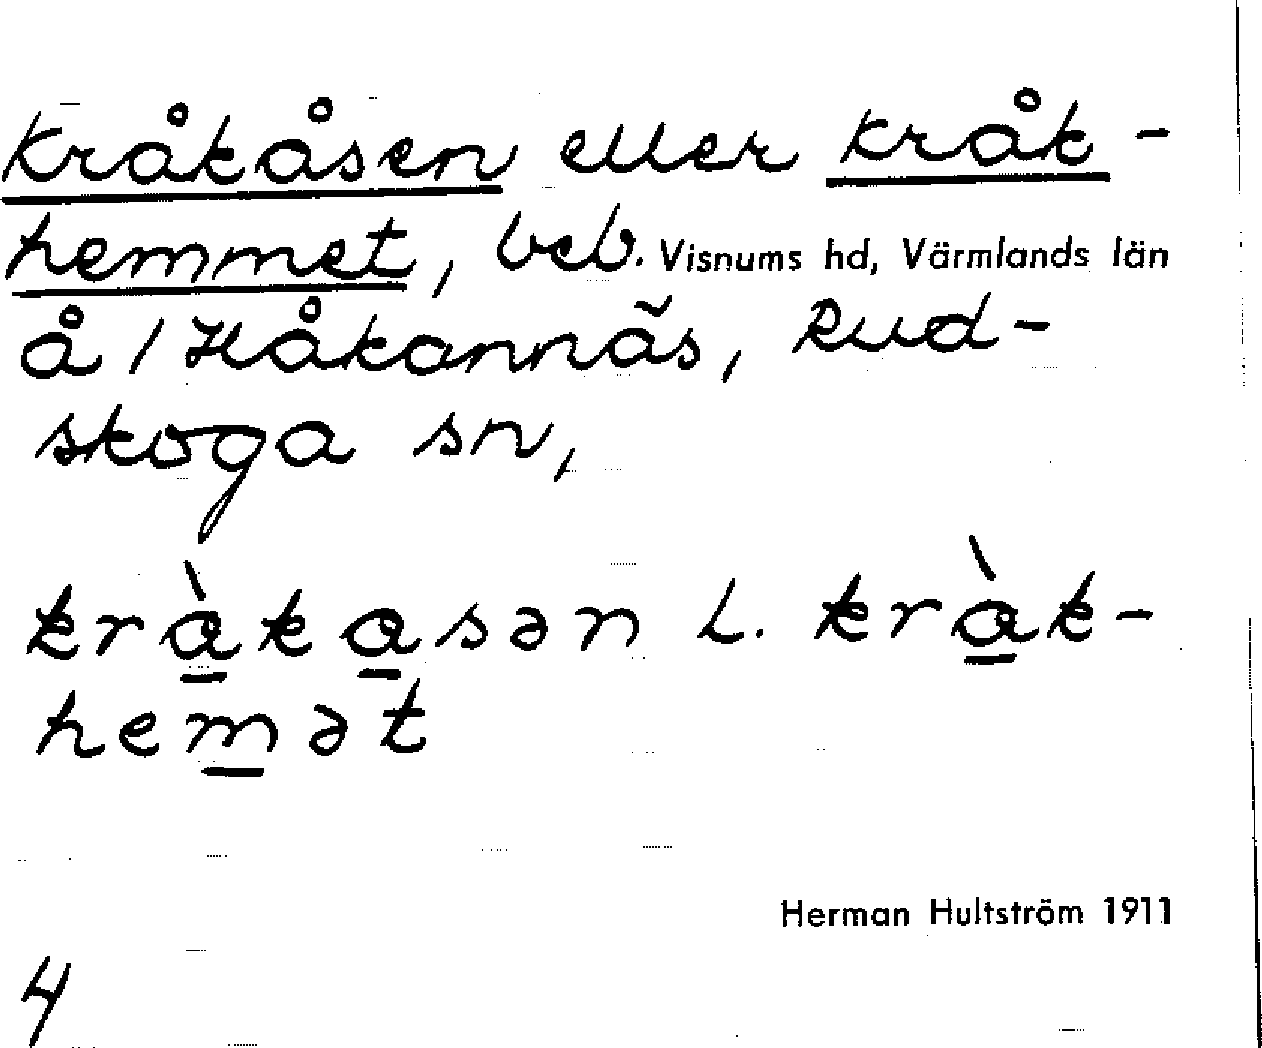 Kråkåsen eller Kråk-
hemmet, beb. Visnums hd, Värmlands län
å / Håkannäs, Rud-
skoga sn,
krà̱ka̱sən l. krà̱k-
hem̱ət
Herman Hultström 1911
4